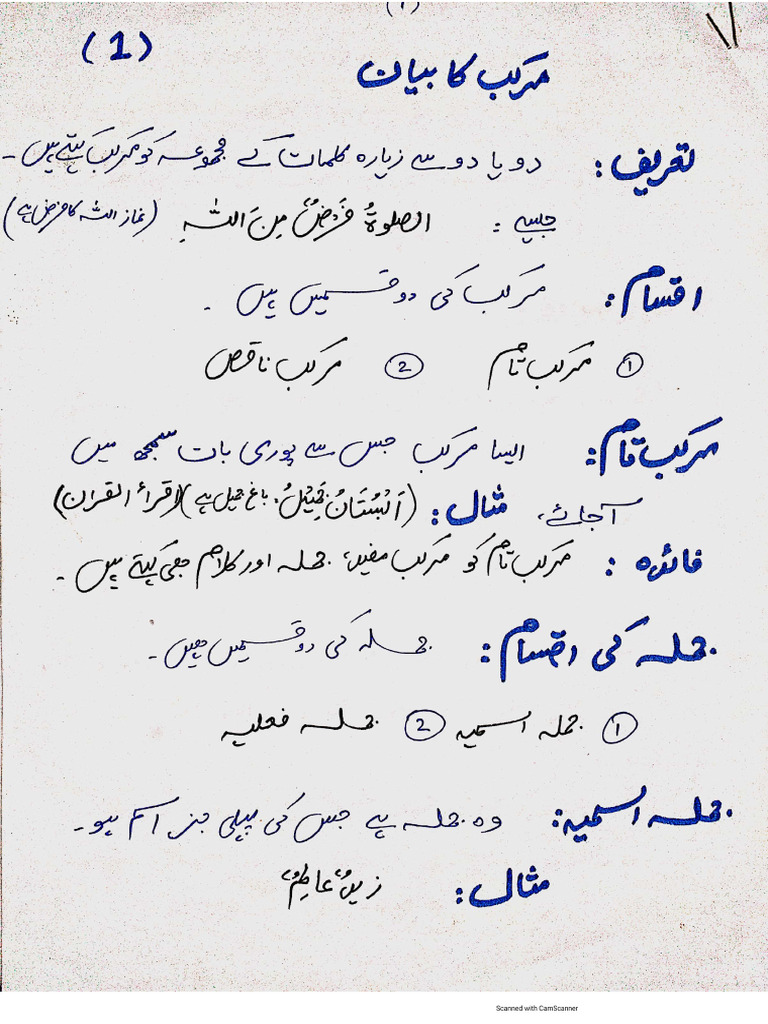 (1)
(1)
مرکب کا بیان
تعریف: دو یا دو سے زیادہ کلمات کے مجموعہ کو مرکب کہتے ہیں۔
جیسے: الصلوۃُ فَرْضٌ مِنَ اللہِ (نماز اللہ کا فرض ہے)
اقسام: مرکب کی دو قسمیں ہیں۔
① مرکب تام ② مرکب ناقص
مرکب تام: ایسا مرکب جس سے پوری بات سمجھ میں
آجائے، مثال: (اَلْبُسْتَانُ جَمِیْلٌ، باغ جمیل ہے)(اقرأ القرآن)
فائدہ: مرکب تام کو مرکب مفید، جملہ اور کلام بھی کہتے ہیں۔
جملہ کی اقسام: جملہ کی دو قسمیں ہیں۔
① جملہ اسمیہ ② جملہ فعلیہ
جملہ اسمیہ: وہ جملہ ہے جس کی پہلی جز اسم ہو۔
مثال: زیدٌ
Scanned with CamScanner